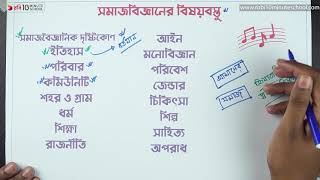 সমাজবিজ্ঞানের বিষয়বস্তু
সমাজবৈজ্ঞানিক দৃষ্টিকোণ
ইতিহাস
পরিবার
কমিউনিটি
শহর ও গ্রাম
ধর্ম
শিক্ষা
রাজনীতি
আইন
মনোবিজ্ঞান
পরিবেশ
জেন্ডার
চিকিৎসা
শিল্প
সাহিত্য
অপরাধ
সমাজ
www.robi10minuteschool.com